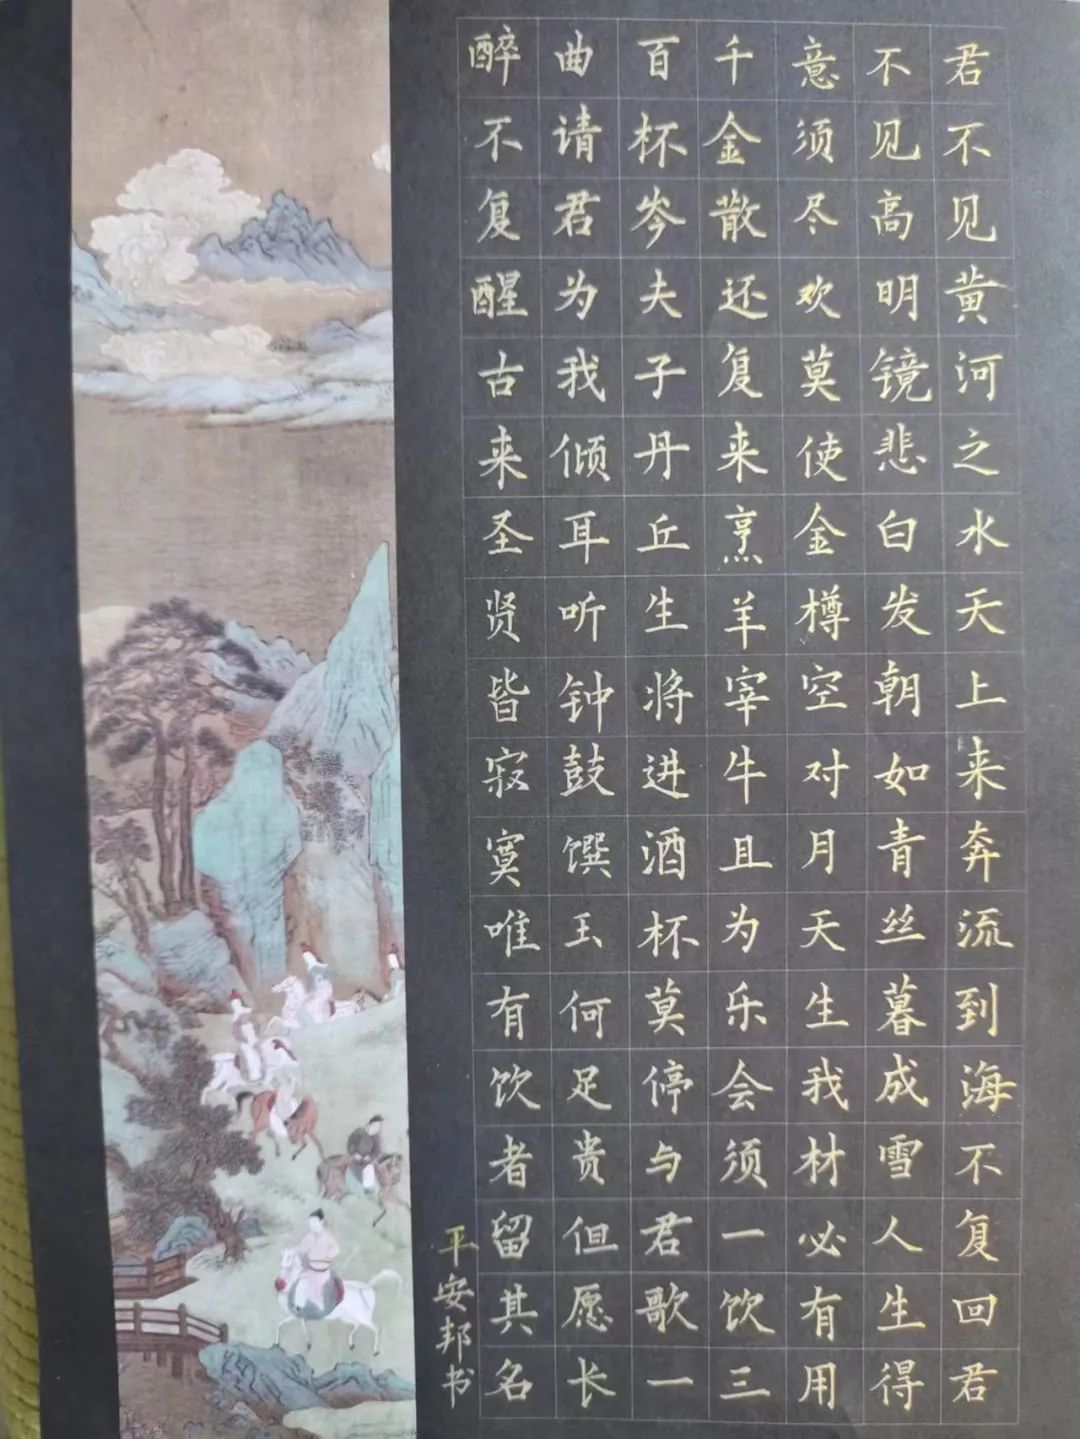 君不见黄河之水天上来奔流到海不复回君
不见高明镜悲白发朝如青丝暮成雪人生得
意须尽欢莫使金樽空对月天生我材必有用
千金散还复来烹羊宰牛且为乐会须一饮三
百杯岑夫子丹丘生将进酒杯莫停与君歌一
曲请君为我倾耳听钟鼓馔玉何足贵但愿长
醉不复醒古来圣贤皆寂寞唯有饮者留其名
平安邦书